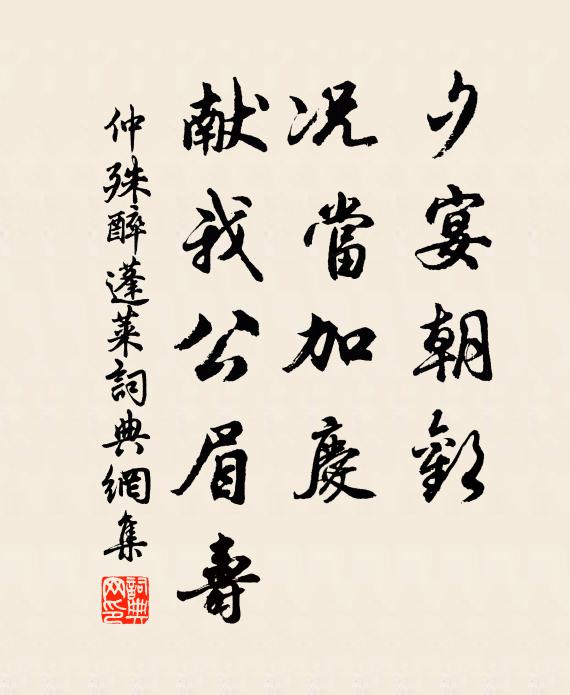 夕宴朝歡
况當加慶
献我公眉壽
仲殊醉蓬萊詞典網集
詞典網印